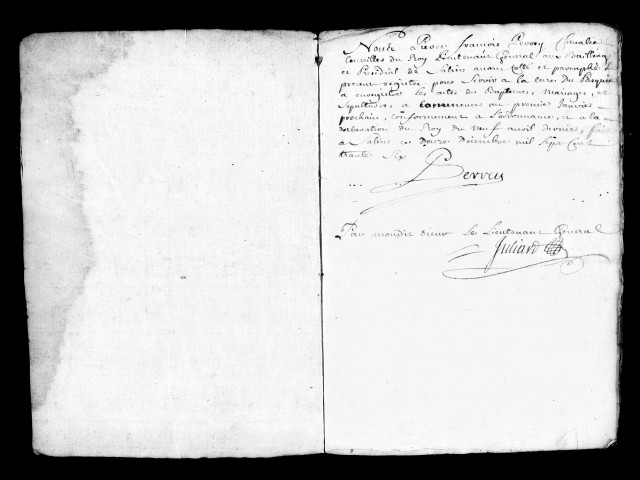 Nous Pierre François Perrey Chevalier
Conseiller du Roy Lieutenant General au Bailliage
et Presidial de Salins avons cotté et paraphé le
present registre pour servir a la cure du
a enregistrer les actes de Baptemes, Mariages, et
Sepultures, a commencer au premier Janvier
prochain, conformement a L'ordonnance, et a la
declaration du Roy du neuf avril dernier, fait
a Salins ce Douze Decembre mil Sept Cent
trante Six
Perrey
Par mondit Sieur Le Lieutenant General
Juliard